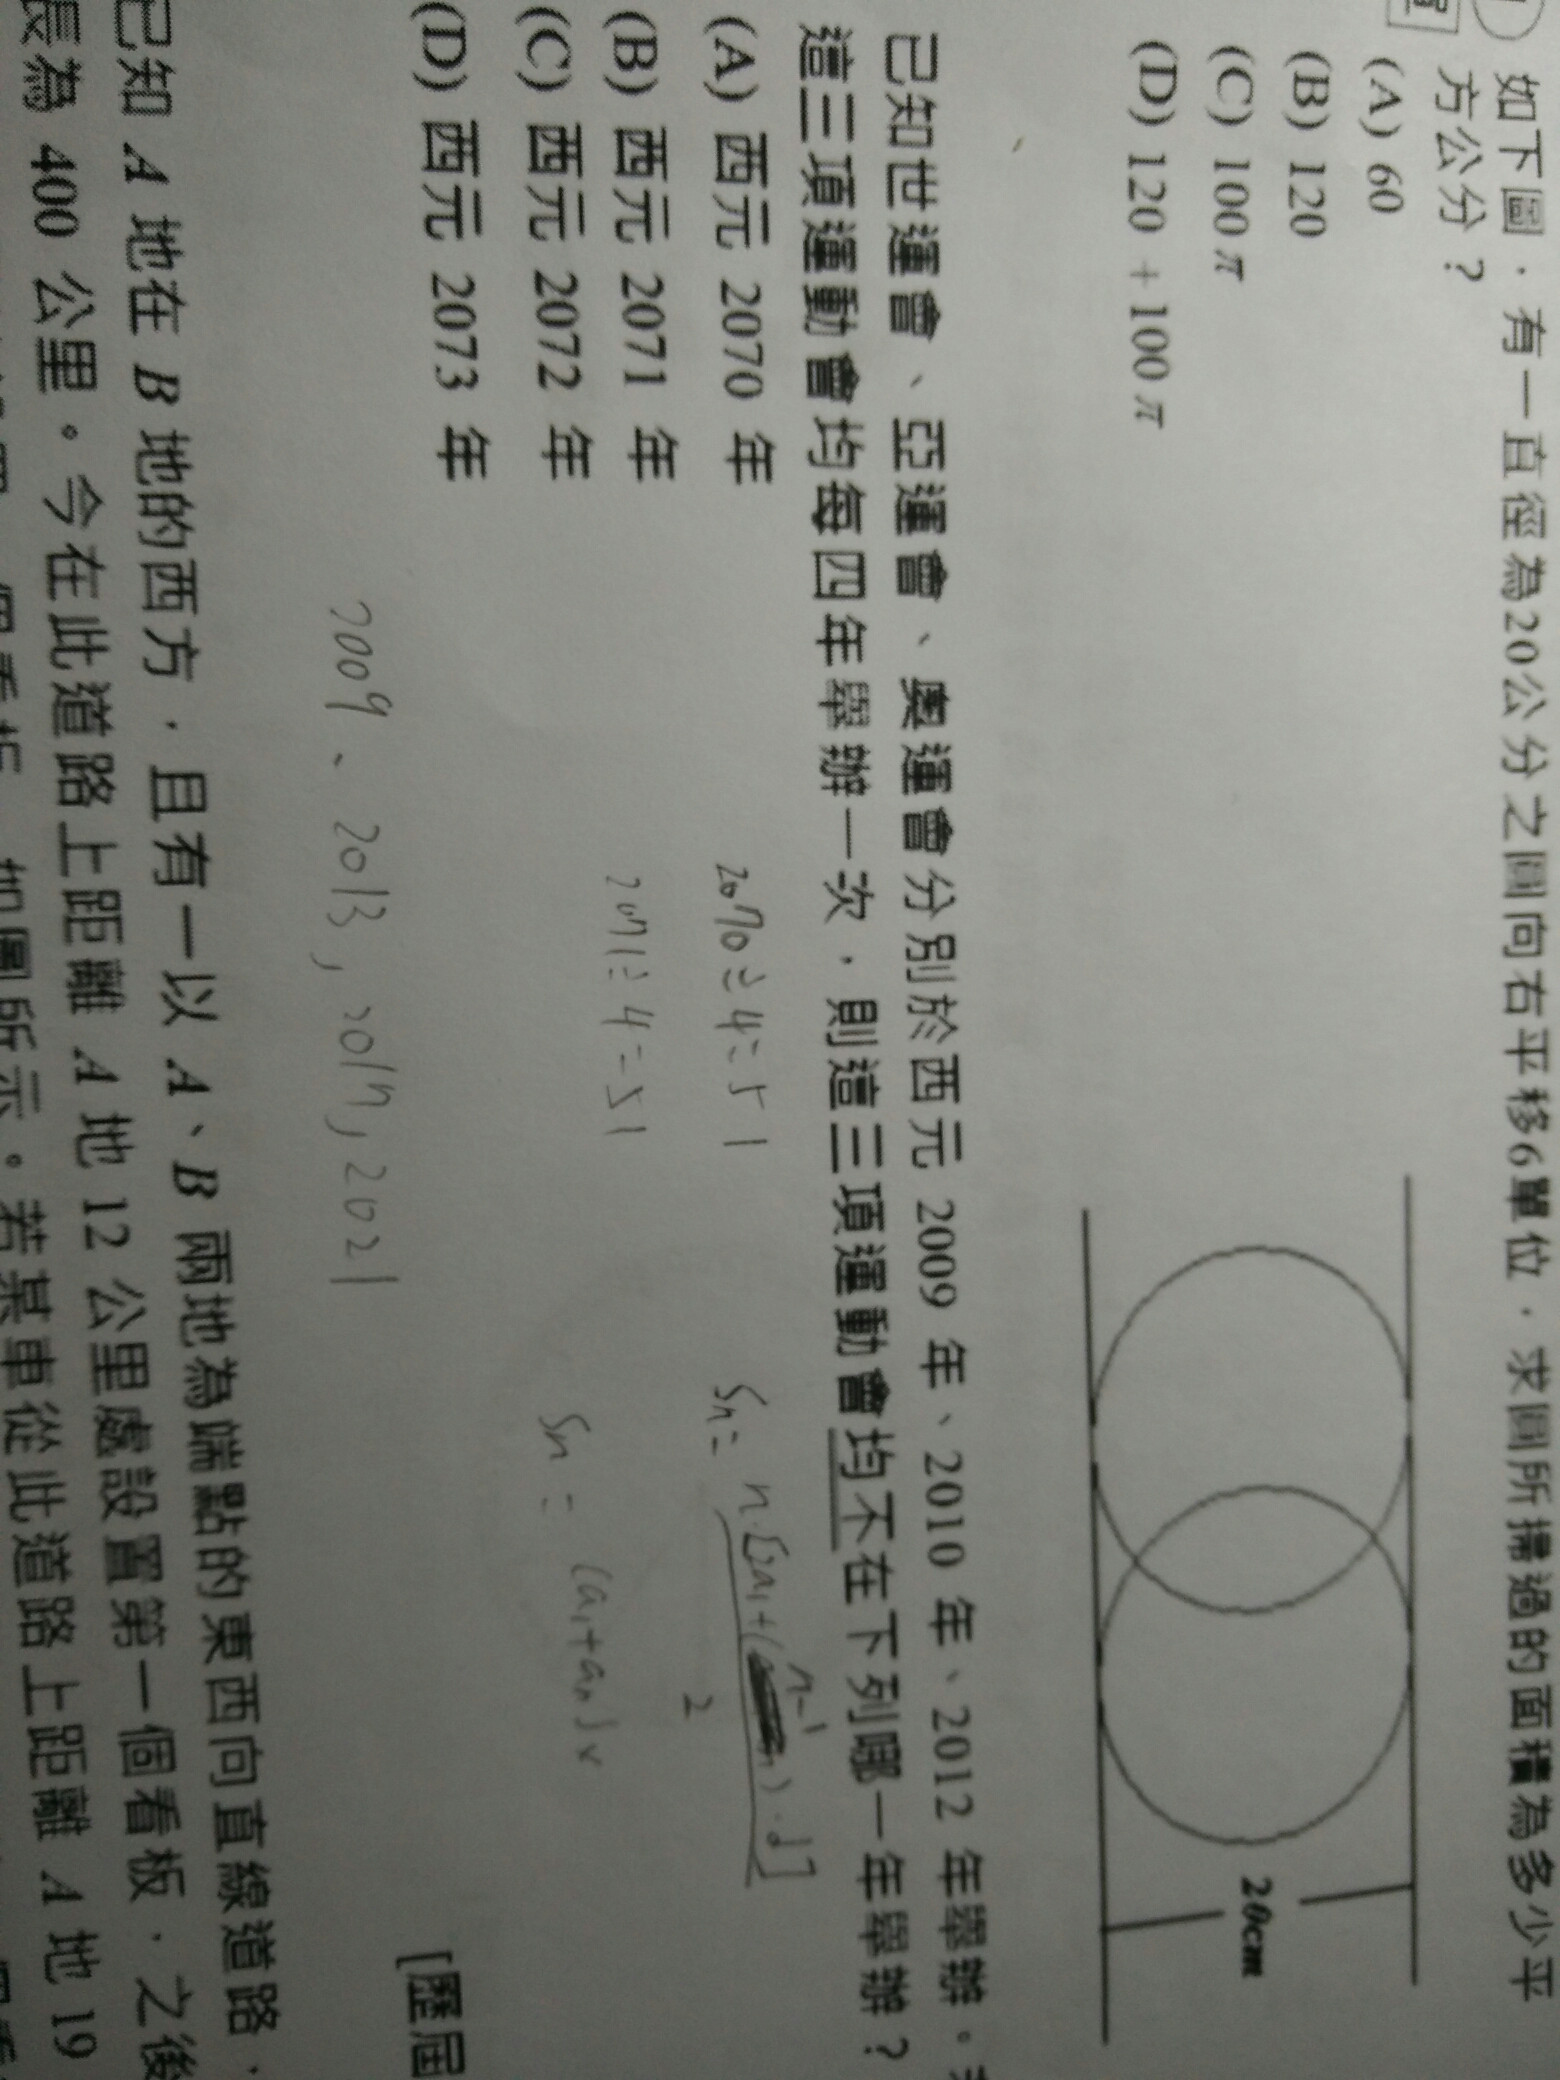 如下圖，有一直徑為20公分之圓向右平移6單位，求圓所掃過的面積為多少平
方公分？
(A) 60
(B) 120
(C) 100π
(D) 120 + 100π
20cm
已知世運會、亞運會、奧運會分別於西元 2009 年、2010 年、2012 年舉辦。
這三項運動會均每四年舉辦一次，則這三項運動會均不在下列哪一年舉辦？
(A) 西元 2070 年
(B) 西元 2071 年
(C) 西元 2072 年
(D) 西元 2073 年
2070÷4=51
2071÷4=51
Sn=
2
Sn = (a₁+an)
2009、2013, 2017, 2021
[歷屆
已知 A 地在 B 地的西方，且有一以 A、B 兩地為端點的東西向直線道路，
長為 400 公里。今在此道路上距離 A 地 12 公里處設置第一個看板，之後
如圖所示。若某車從此道路上距離 A 地 19